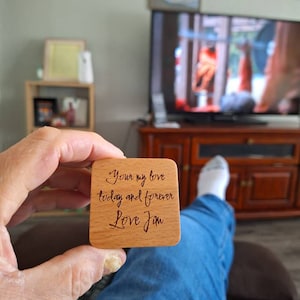 "Your my love
today and forever
Love Jim